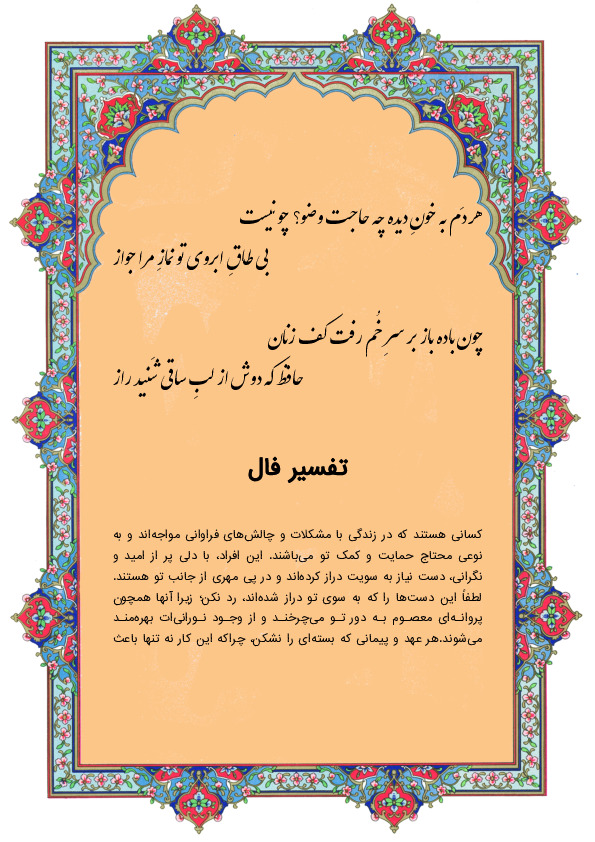 هر دَم به خونِ دیده چه حاجت وضو؟ چو نیست
بی طاقِ ابروی تو نمازِ مرا جواز
چون باده باز بر سرِ خُم رفت کف زنان
حافظ که دوش از لبِ ساقی شنید راز
تفسیر فال
کسانی هستند که در زندگی با مشکلات و چالش‌های فراوانی مواجه‌اند و به
نوعی محتاج حمایت و کمک تو می‌باشند. این افراد، با دلی پر از امید و
نگرانی، دست نیاز به سویت دراز کرده‌اند و در پی مهری از جانب تو هستند.
لطفاً این دست‌ها را که به سوی تو دراز شده‌اند، رد نکن؛ زیرا آنها همچون
پروانـه‌ای معصـوم بـه دور تـو می‌چرخنـد و از وجـود نـورانی‌ات بهره‌منـد
می‌شوند.هر عهد و پیمانی که بسته‌ای را نشکن، چراکه این کار نه تنها باعث